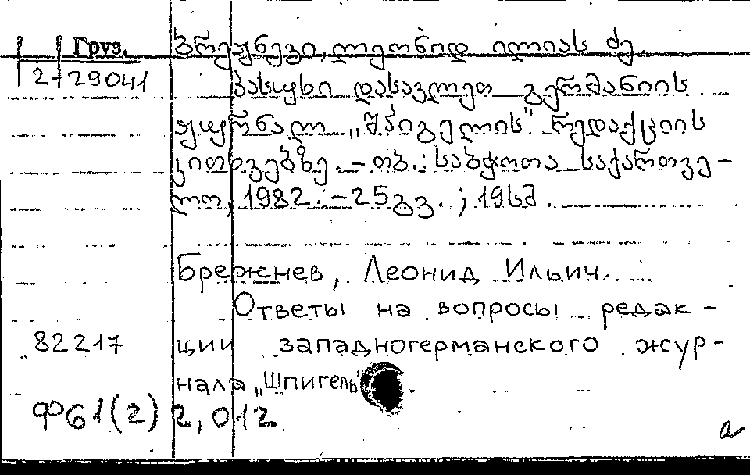 Груз. ბრეჟნევი, ლეონიდ ილიას ძე
2-29041 პასუხი დასავლეთ გერმანიის
ჟურნალ „შპიგელის" რედაქციის
კითხვებზე. – თბ.: საბჭოთა საქართვე-
ლო, 1982. – 25 გვ. ; 19სმ.
Брежнев, Леонид Ильич.
Ответы на вопросы редак-
82217 ции западногерманского жур-
нала „Шпигель"
Ф61(2)2,012
a